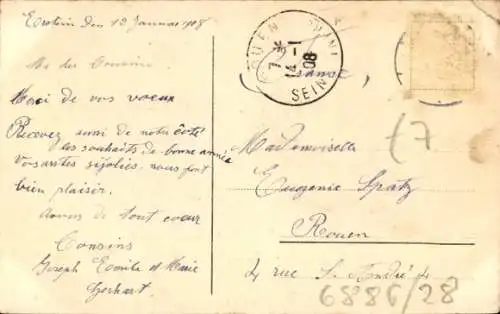 Erstein den 12 Januar 1908
Merci de vos voeux
Recevez aussi de notre côté
les souhaits de bonne année
Vos cartes si jolies, nous font
bien plaisir.
de tout coeur
Cousins
Joseph Emile et Marie
Gerhart
ROUEN
7
14 - 1
08
SEINE
Mademoiselle
Eugenie Spatz
Rouen
4 rue S. André
17
6886/28